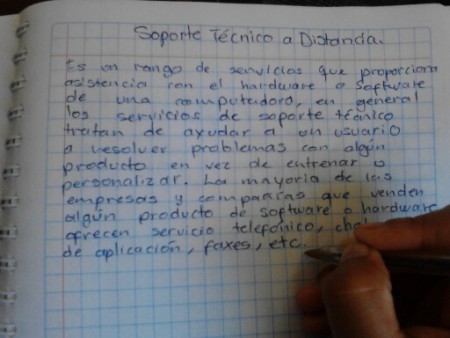 Soporte Técnico a Distancia.
Es un rango de servicios que proporciona
asistencia con el hardware o software
de una computadora, en general
los servicios de soporte técnico
tratan de ayudar a un usuario
a resolver problemas con algún
producto en vez de entrenar o
personalizar. La mayoría de las
empresas y compañías que venden
algún producto de software o hardware
ofrecen servicio telefónico,
de aplicación, faxes, etc.